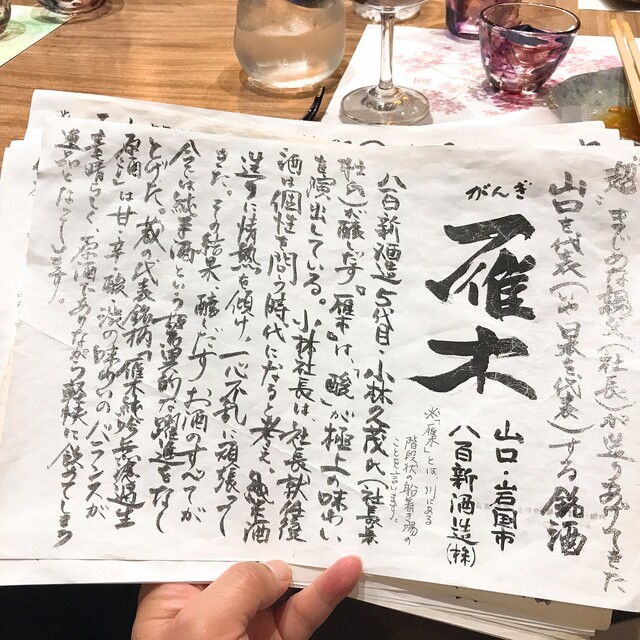 超まじめな現大(社長)が造りあげてきた
山口を代表(いや日本を代表)する銘酒
がんぎ
雁木
山口・岩国市
八百新酒造(株)
※「雁木」とは、川にある
階段状の船着き場の
ことを言います。
八百新酒造5代目・小林久茂氏(社長兼
杜氏)が醸しだす「雁木」は、「酸」が極上の味わい
を演出している。小林社長は、社長就任後
酒は個性を問う時代になると考え、純米酒
造りに情熱を傾け、一心不乱に頑張って
きた。その結果、醸しだすお酒のすべてが
今では純米酒という驚異的な躍進をなし
とげた。蔵の代表銘柄「雁木純吟無濾過生
原酒」は甘・辛・酸・渋の味わいのバランスが
素晴らしく原酒でありながら軽快に飲めてしまう
逸品となっています。